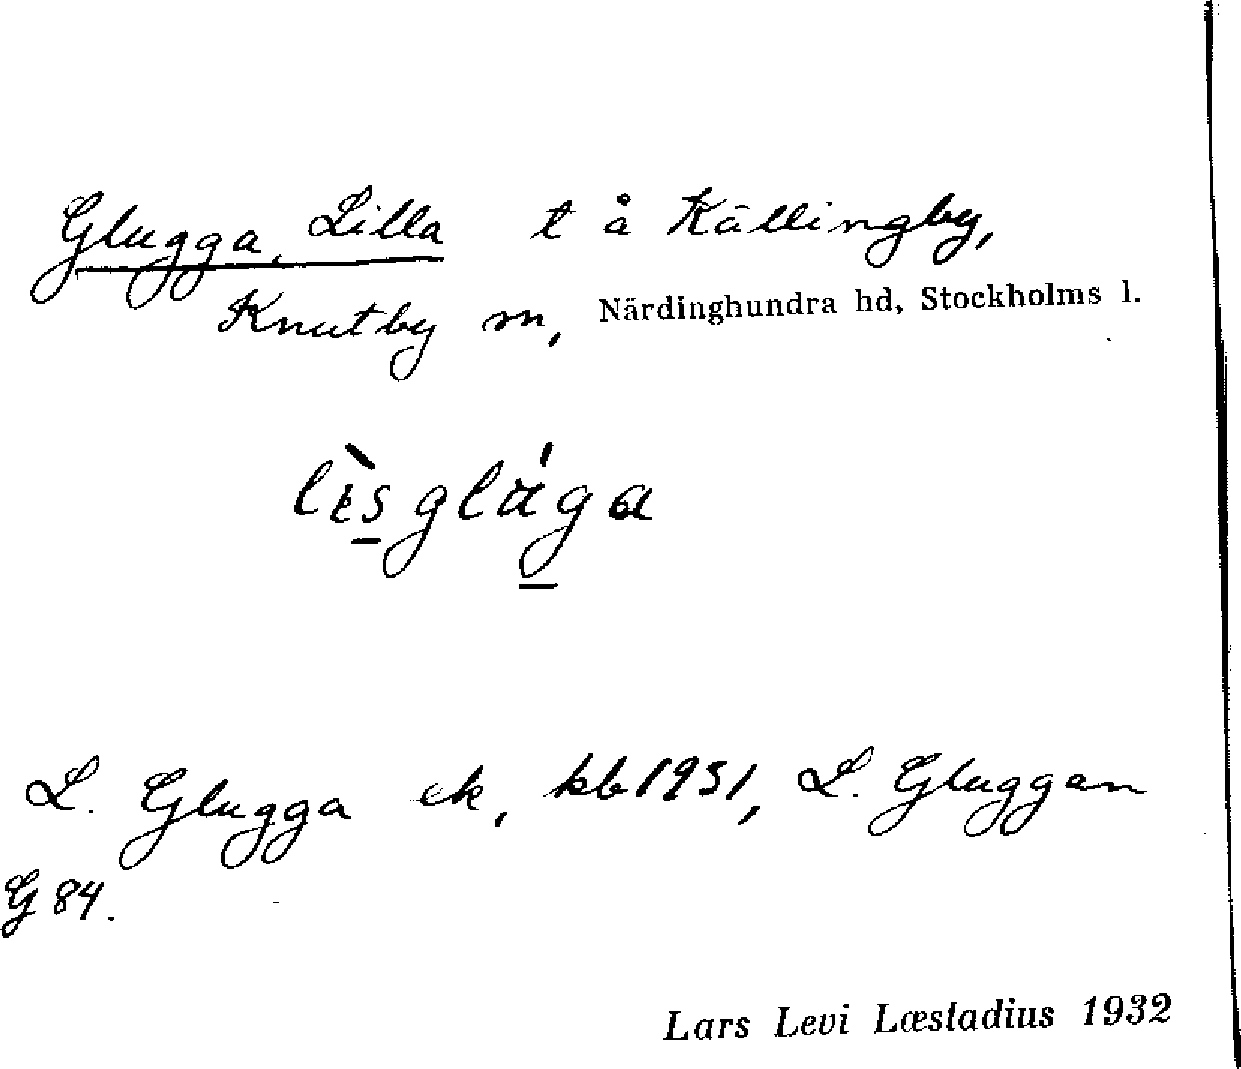 Glugga, Lilla t å Källingby,
Knutby sn, Närdinghundra hd, Stockholms l.
L. Glugga ek, kb 1931, L. Gluggan
G 84.
Lars Levi Læstadius 1932